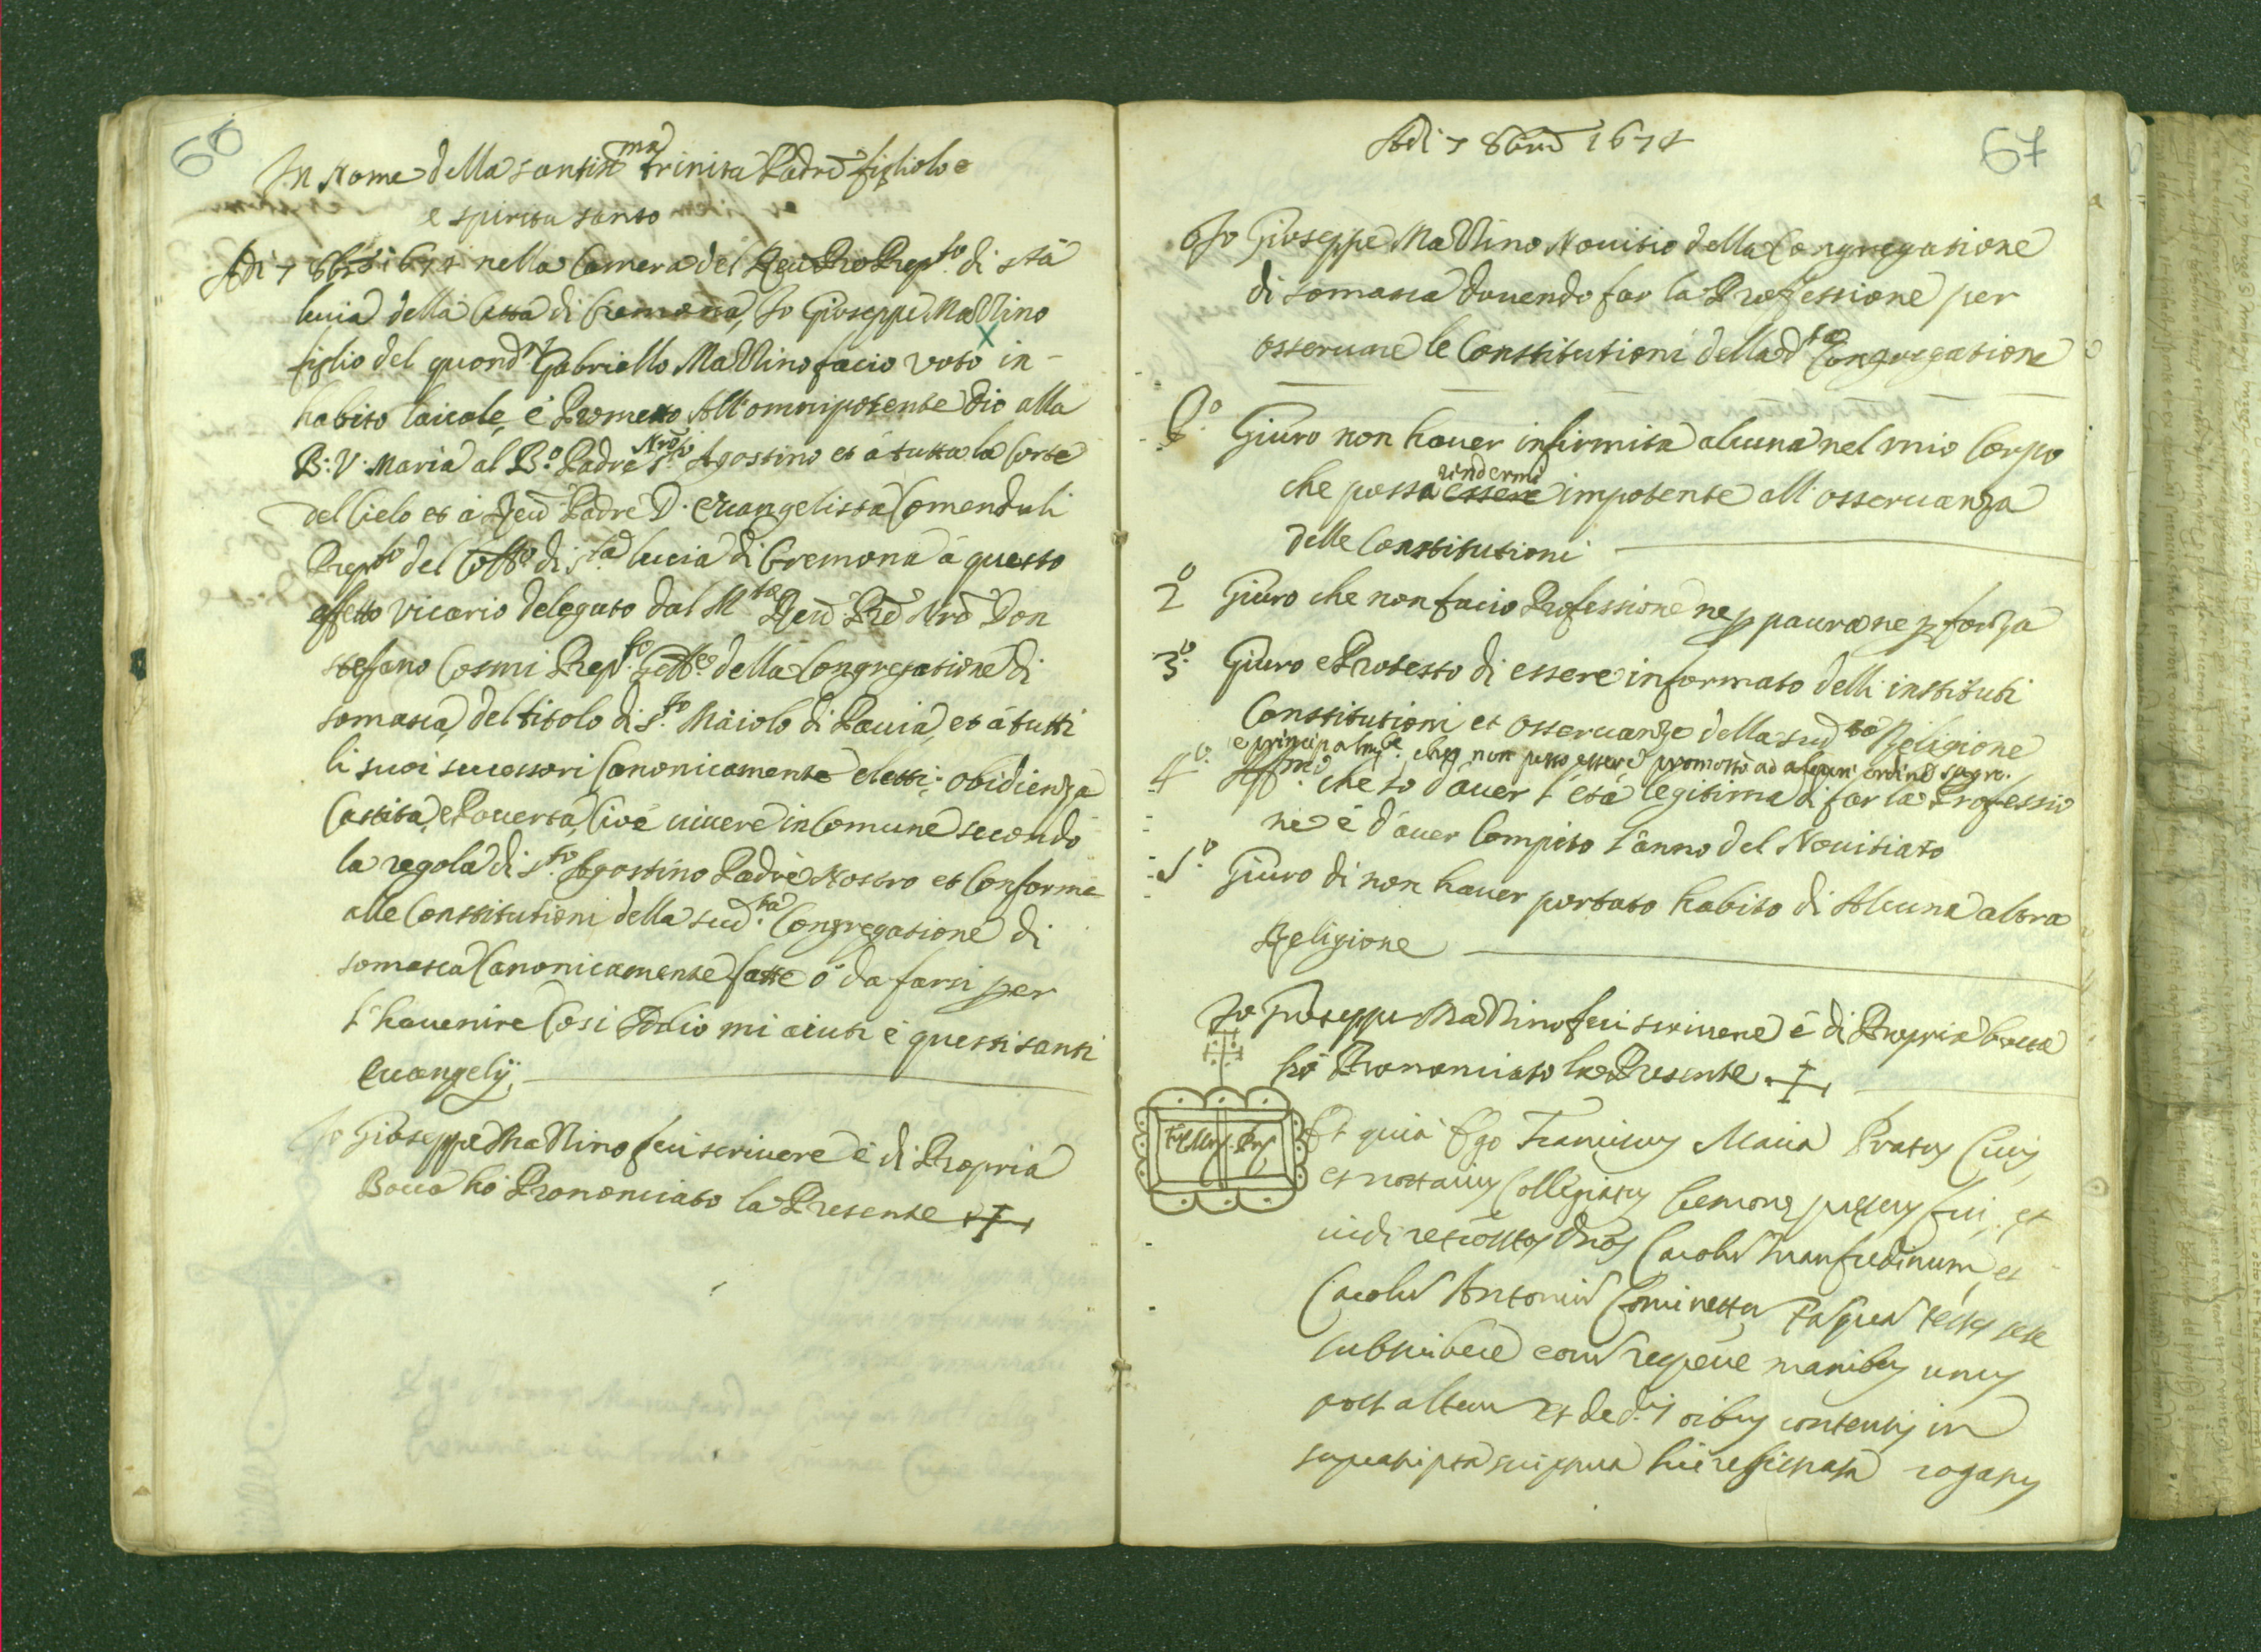 66
In Nome della santis.ma trinita Padre figliolo e
e spiritu santo
Adi 7 8bre 1674 nella Camera del Reu Pre Prep.to di sta
lucia della Citta di Cremona, Jo Giuseppe Mallino
figlio del quond.m Gabriello Mallino facio voto in
habito laicale, e Prometto All'omnipotente Dio alla
B: V: Maria al B.o Padre Nro S.to Agostino et á tutta la Corte
del Cielo et á Reu Padre D. Euangelista Comenduli
Prep.to del Coll.o di S.ta lucia di Cremona á questo
effetto vicario delegato dal M.to Reu Pre Nro Don
stefano Cosmi Prep.to Gen.le della Congregatione di
somasca, del titolo di S.to Máiolo di Pauia, et á tutti
li suoi successori Canonicamente eletti: obidienza
Castita, e Pouerta, Cioé uiuere in Comune secondo
la regola di S.to Agostino Padre Nostro et Conforme
alle Constitutioni della sud.ta Congregatione di
somasca Canonicamente fatte ó da farsi per
l'hauenire Cosi Iddio mi aiuti é questi santi
Euangelij
Jo Giuseppe Mallino feci scriuere é di Propria
Bocca hó Prononciato la Presente +
Adi 7 8bre 1674
67
Jo Giuseppe Mallino Nouitio della Congregatione
di somasca douendo far la Proffessione per
osseruare le Constitutioni della d.ta Congregatione
P.o Giuro non hauer infirmita alcuna nel mio Corpo
che possa essere rindermi impotente all'osseruanza
delle Constitutioni
2.o Giuro che non facio Professione ne p paura ne p forza
3.o Giuro e Protesto di essere informato delli instituti
Constitutioni et osseruanze della sud.ta Religione
e principalm.te che non posso essere promosso ad alcun' ordine sagro.
4.o Aff.mo che io d'auer l'etá legitima di far la Professio
ne é d'auer Compito l'anno del Nouitiato
5.o Giuro di non hauer portato habito di Alcuna altra
Religione
Jo Giuseppe Mallino feci scriuere é di Propria bocca
hó Prononciato la Presente +
Et quia Ego Franciscus Maria Pratus Ciuis
et notarius Collegiatus Cremonę pręsens fui, et
uidi Manfredinum, et
Antoniu
subscribere manibus unus
post alterum et de contentis in
hic rogatus